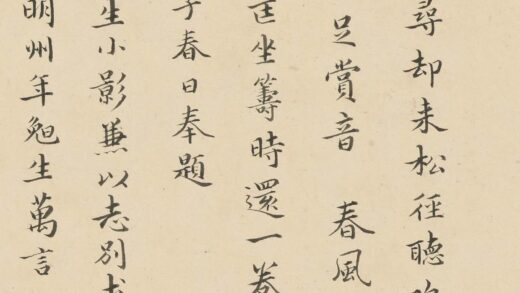 尋却来松徑聽
足賞音 春風
匡坐籌時還一卷
子春日奉題
生小影兼以志別
明州年勉生萬言